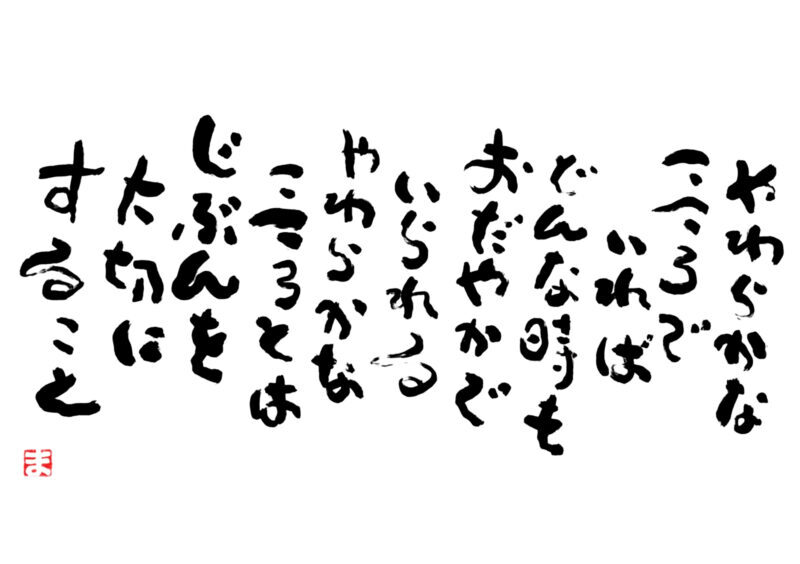 やわらかな
こころで
いれば
どんな時も
おだやかで
いられる
やわらかな
こころとは
じぶんを
大切に
すること
ま